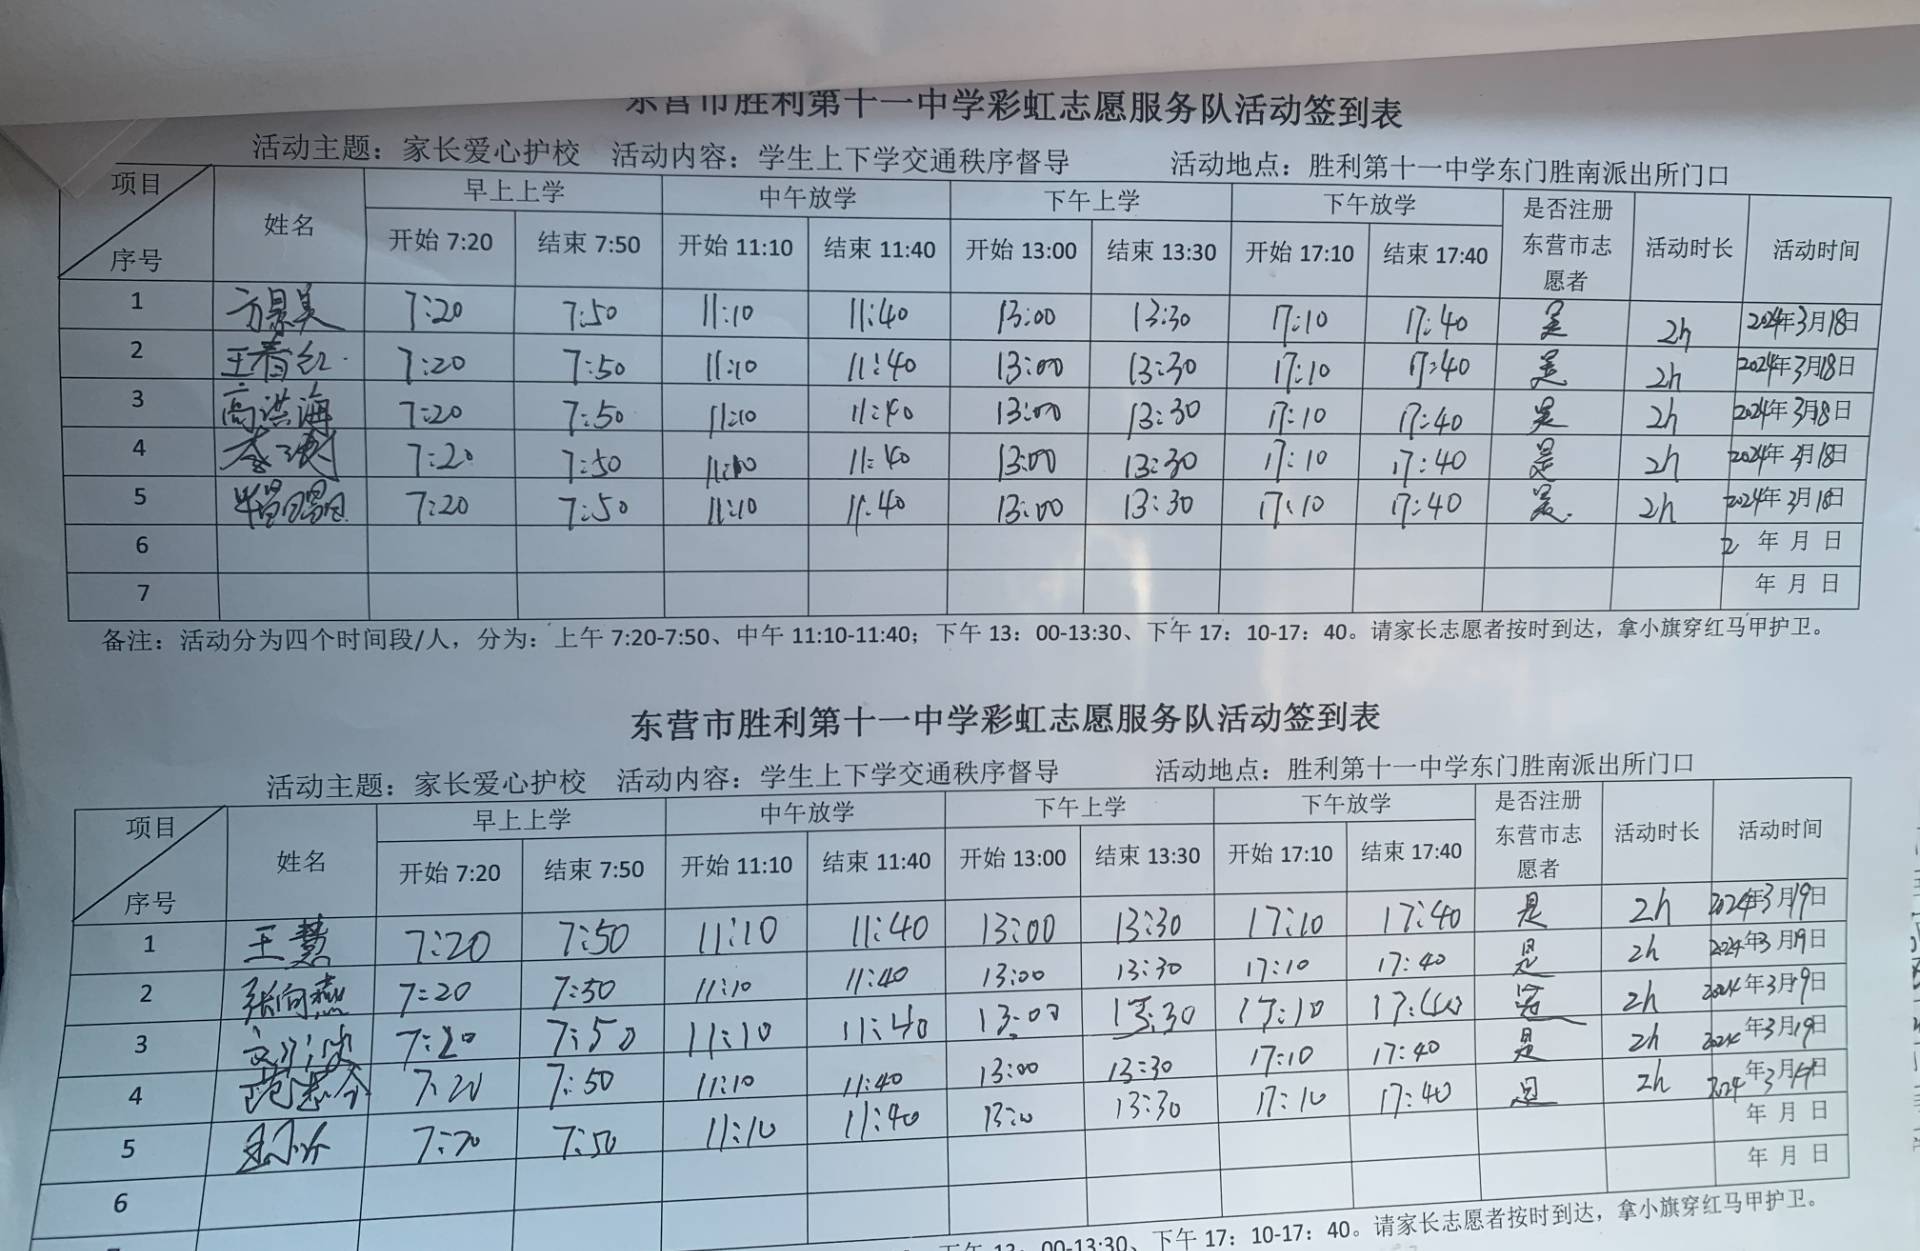 东营市胜利第十一中学彩虹志愿服务队活动签到表
活动主题：家长爱心护校 活动内容：学生上下学交通秩序督导 活动地点：胜利第十一中学东门胜南派出所门口
项目 序号 姓名 早上上学 中午放学 下午上学 下午放学 是否注册东营市志愿者 活动时长 活动时间
开始 7:20 结束 7:50 开始 11:10 结束 11:40 开始 13:00 结束 13:30 开始 17:10 结束 17:40
1 方景美 7:20 7:50 11:10 11:40 13:00 13:30 17:10 17:40 是 2h 2024年3月18日
2 王春红 7:20 7:50 11:10 11:40 13:00 13:30 17:10 17:40 是 2h 2024年3月18日
3 高洪海 7:20 7:50 11:10 11:40 13:00 13:30 17:10 17:40 是 2h 2024年3月18日
4 7:20 7:50 11:10 11:40 13:00 13:30 17:10 17:40 是 2h 2024年3月18日
5 7:20 7:50 11:10 11:40 13:00 13:30 17:10 17:40 是 2h 2024年3月18日
6 2 年 月 日
7 年 月 日
备注：活动分为四个时间段/人，分为：上午 7:20-7:50、中午 11:10-11:40；下午 13：00-13:30、下午 17：10-17：40。请家长志愿者按时到达，拿小旗穿红马甲护卫。
东营市胜利第十一中学彩虹志愿服务队活动签到表
活动主题：家长爱心护校 活动内容：学生上下学交通秩序督导 活动地点：胜利第十一中学东门胜南派出所门口
项目 序号 姓名 早上上学 中午放学 下午上学 下午放学 是否注册东营市志愿者 活动时长 活动时间
开始 7:20 结束 7:50 开始 11:10 结束 11:40 开始 13:00 结束 13:30 开始 17:10 结束 17:40
1 王慧 7:20 7:50 11:10 11:40 13:00 13:30 17:10 17:40 是 2h 2024年3月19日
2 张向燕 7:20 7:50 11:10 11:40 13:00 13:30 17:10 17:40 是 2h 2024年3月19日
3 7:20 7:50 11:10 11:40 13:00 13:30 17:10 17:40 2h 2024年3月19日
4 7:20 7:50 11:10 11:40 13:00 13:30 17:10 17:40 是 2h 2024年3月19日
5 7:20 7:50 11:10 11:40 13:30 17:10 17:40 是 2h 2024年3月19日
6 年 月 日
年 月 日
00-13:30、下午 17：10-17：40。请家长志愿者按时到达，拿小旗穿红马甲护卫。